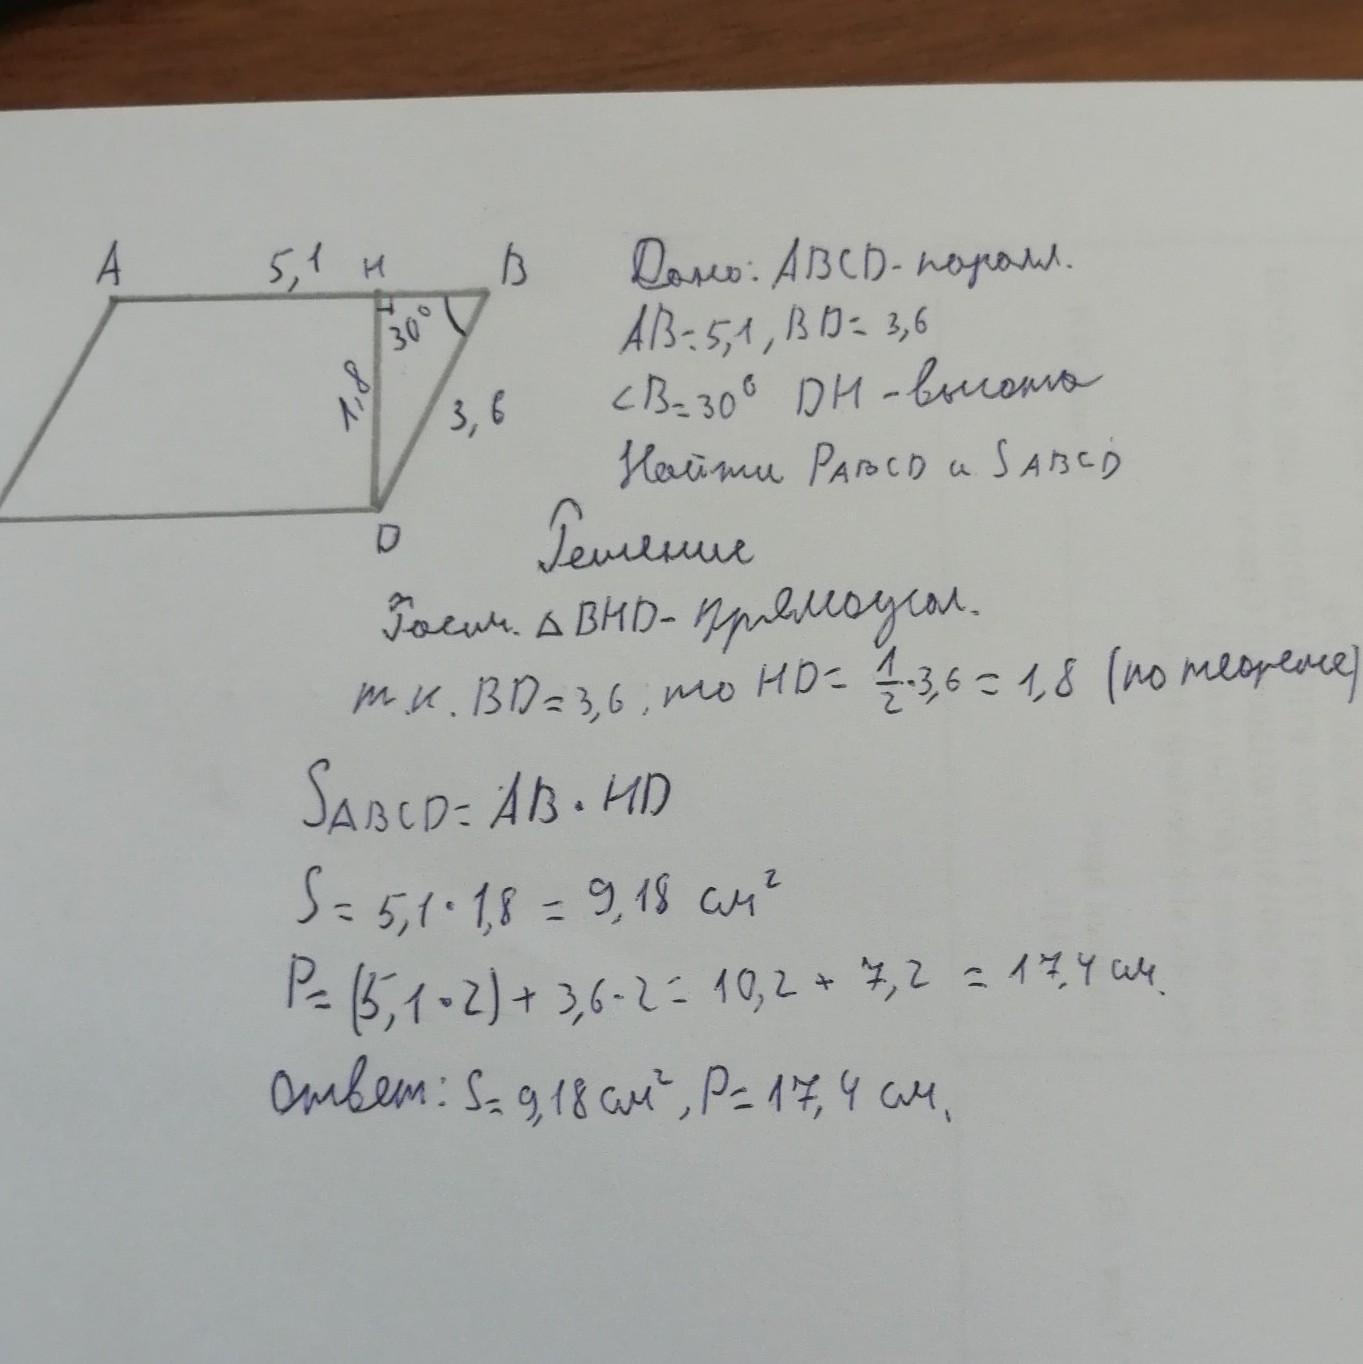 A 5,1 H B
30°
1,8
3,6
D
Дано: ABCD - поралл.
AB = 5,1, BD = 3,6
∠B = 30° DH - высота
Найти PABCD и SABCD
Решение
Рассм. △BHD - прямоугол.
т.к. BD = 3,6, то HD = 1/2 · 3,6 = 1,8 (по теореме)
SABCD = AB · HD
S = 5,1 · 1,8 = 9,18 см²
P = (5,1 · 2) + 3,6 · 2 = 10,2 + 7,2 = 17,4 см.
Ответ: S = 9,18 см², P = 17,4 см.